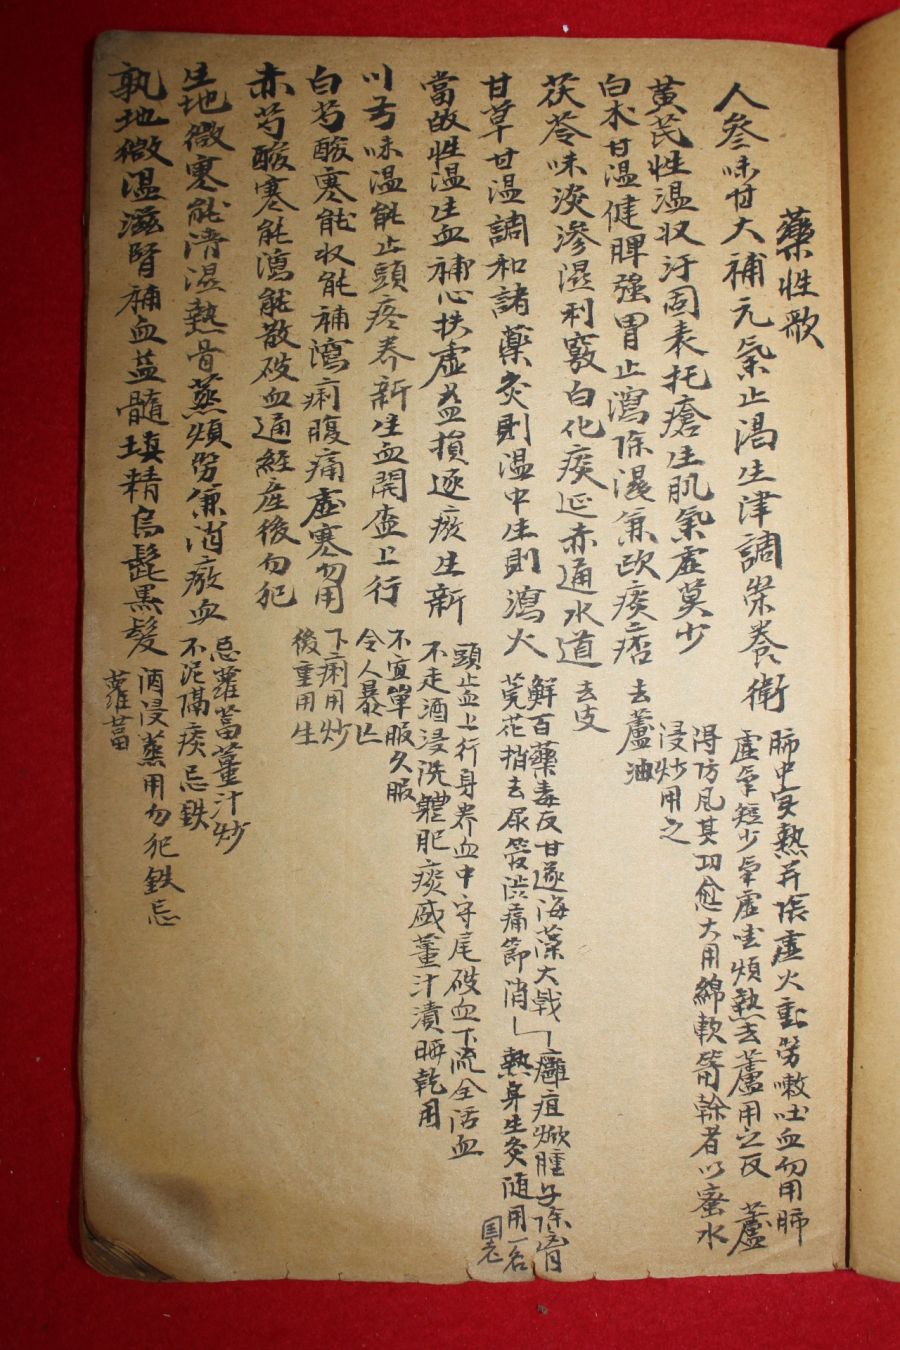 藥性歌
人參味甘大補元氣止渴生津調榮養衛
肺中實熱并陰虛火動勞嗽吐血勿用肺
虛氣短少氣虛喘煩熱去蘆用之反蘆
黃芪性溫收汗固表托瘡生肌氣虛莫少
得防風其功愈大用綿軟箭幹者以蜜水
浸炒用之
白朮甘溫健脾強胃止瀉除濕兼歐痰痞
去蘆油
茯苓味淡滲濕利竅白化痰延赤通水道
去皮
甘草甘溫調和諸藥灸則溫中生則瀉火
解百藥毒反甘遂海藻大戟癰疽焮腫子除
芫花梢去尿管澁痛節消熱身生灸隨用一名
国老
當故性溫生血補心扶虛益損逐瘀生新
頭止血上行身养血中守尾破血下流全活血
不走酒浸洗體肥痰盛薑汁漬晒乾用
川芎味溫能止頭疼养新生血開鬱上行
不宜單服久服
令人暴亡
白芍酸寒能收能補瀉痢腹痛虛寒勿用
下痢用炒
後重用生
赤芍酸寒能瀉能散破血通經產後勿犯
生地微寒能清濕熱骨蒸煩勞兼消瘀血
忌蘿葍薑汁炒
不泥隔痰忌鉄
熟地微溫滋腎補血益髓填精烏髭黑髮
酒浸蒸用勿犯鉄忌
蘿葍